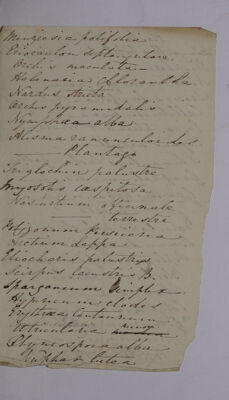 Menziesia polifolia
Eriocaulon septangulare
Orchis maculata
Habenaria Chlorantha
Nardus stricta
Orchis pyramidalis
Nymphæa alba
Alisma ranunculoides
——— Plantago
Triglochin palustre
Myosotis cæspitosa
Nasturtium officinale
——— terrestre
Polygonum Persicaria
Arctium Lappa
Eliocharis palustris
Scirpus lacustris B.
Sparganium simplex
Hypericum elodes
Erythræa Centaurium
Utricularia minor
Rhyncospora alba
Nuphar lutea